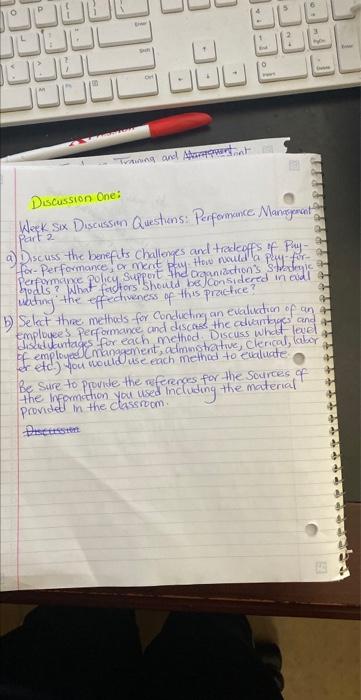 Training and
Discussion One:
Week Six Discussion Questions: Performance Management
Part 2
a) Discuss the benefits Challenges and tradeoffs of Pay-
for-Performance, or merit pay. How would a play-for-
Performance Policy Support the Organization's Strategic
goals? What factors should be considered in eval
uating the effectiveness of this practice?
b) Select three methods for Conducting an evaluation of an
employee's Performance and discuss the advantages and
disadvantages for each method. Discuss what level
of employee (management, administrative, Clerical, labor
or etc) you would use each method to evaluate.
Be Sure to provide the references for the Sources of
the Information you used Including the material
provided In the classroom.
Discussion